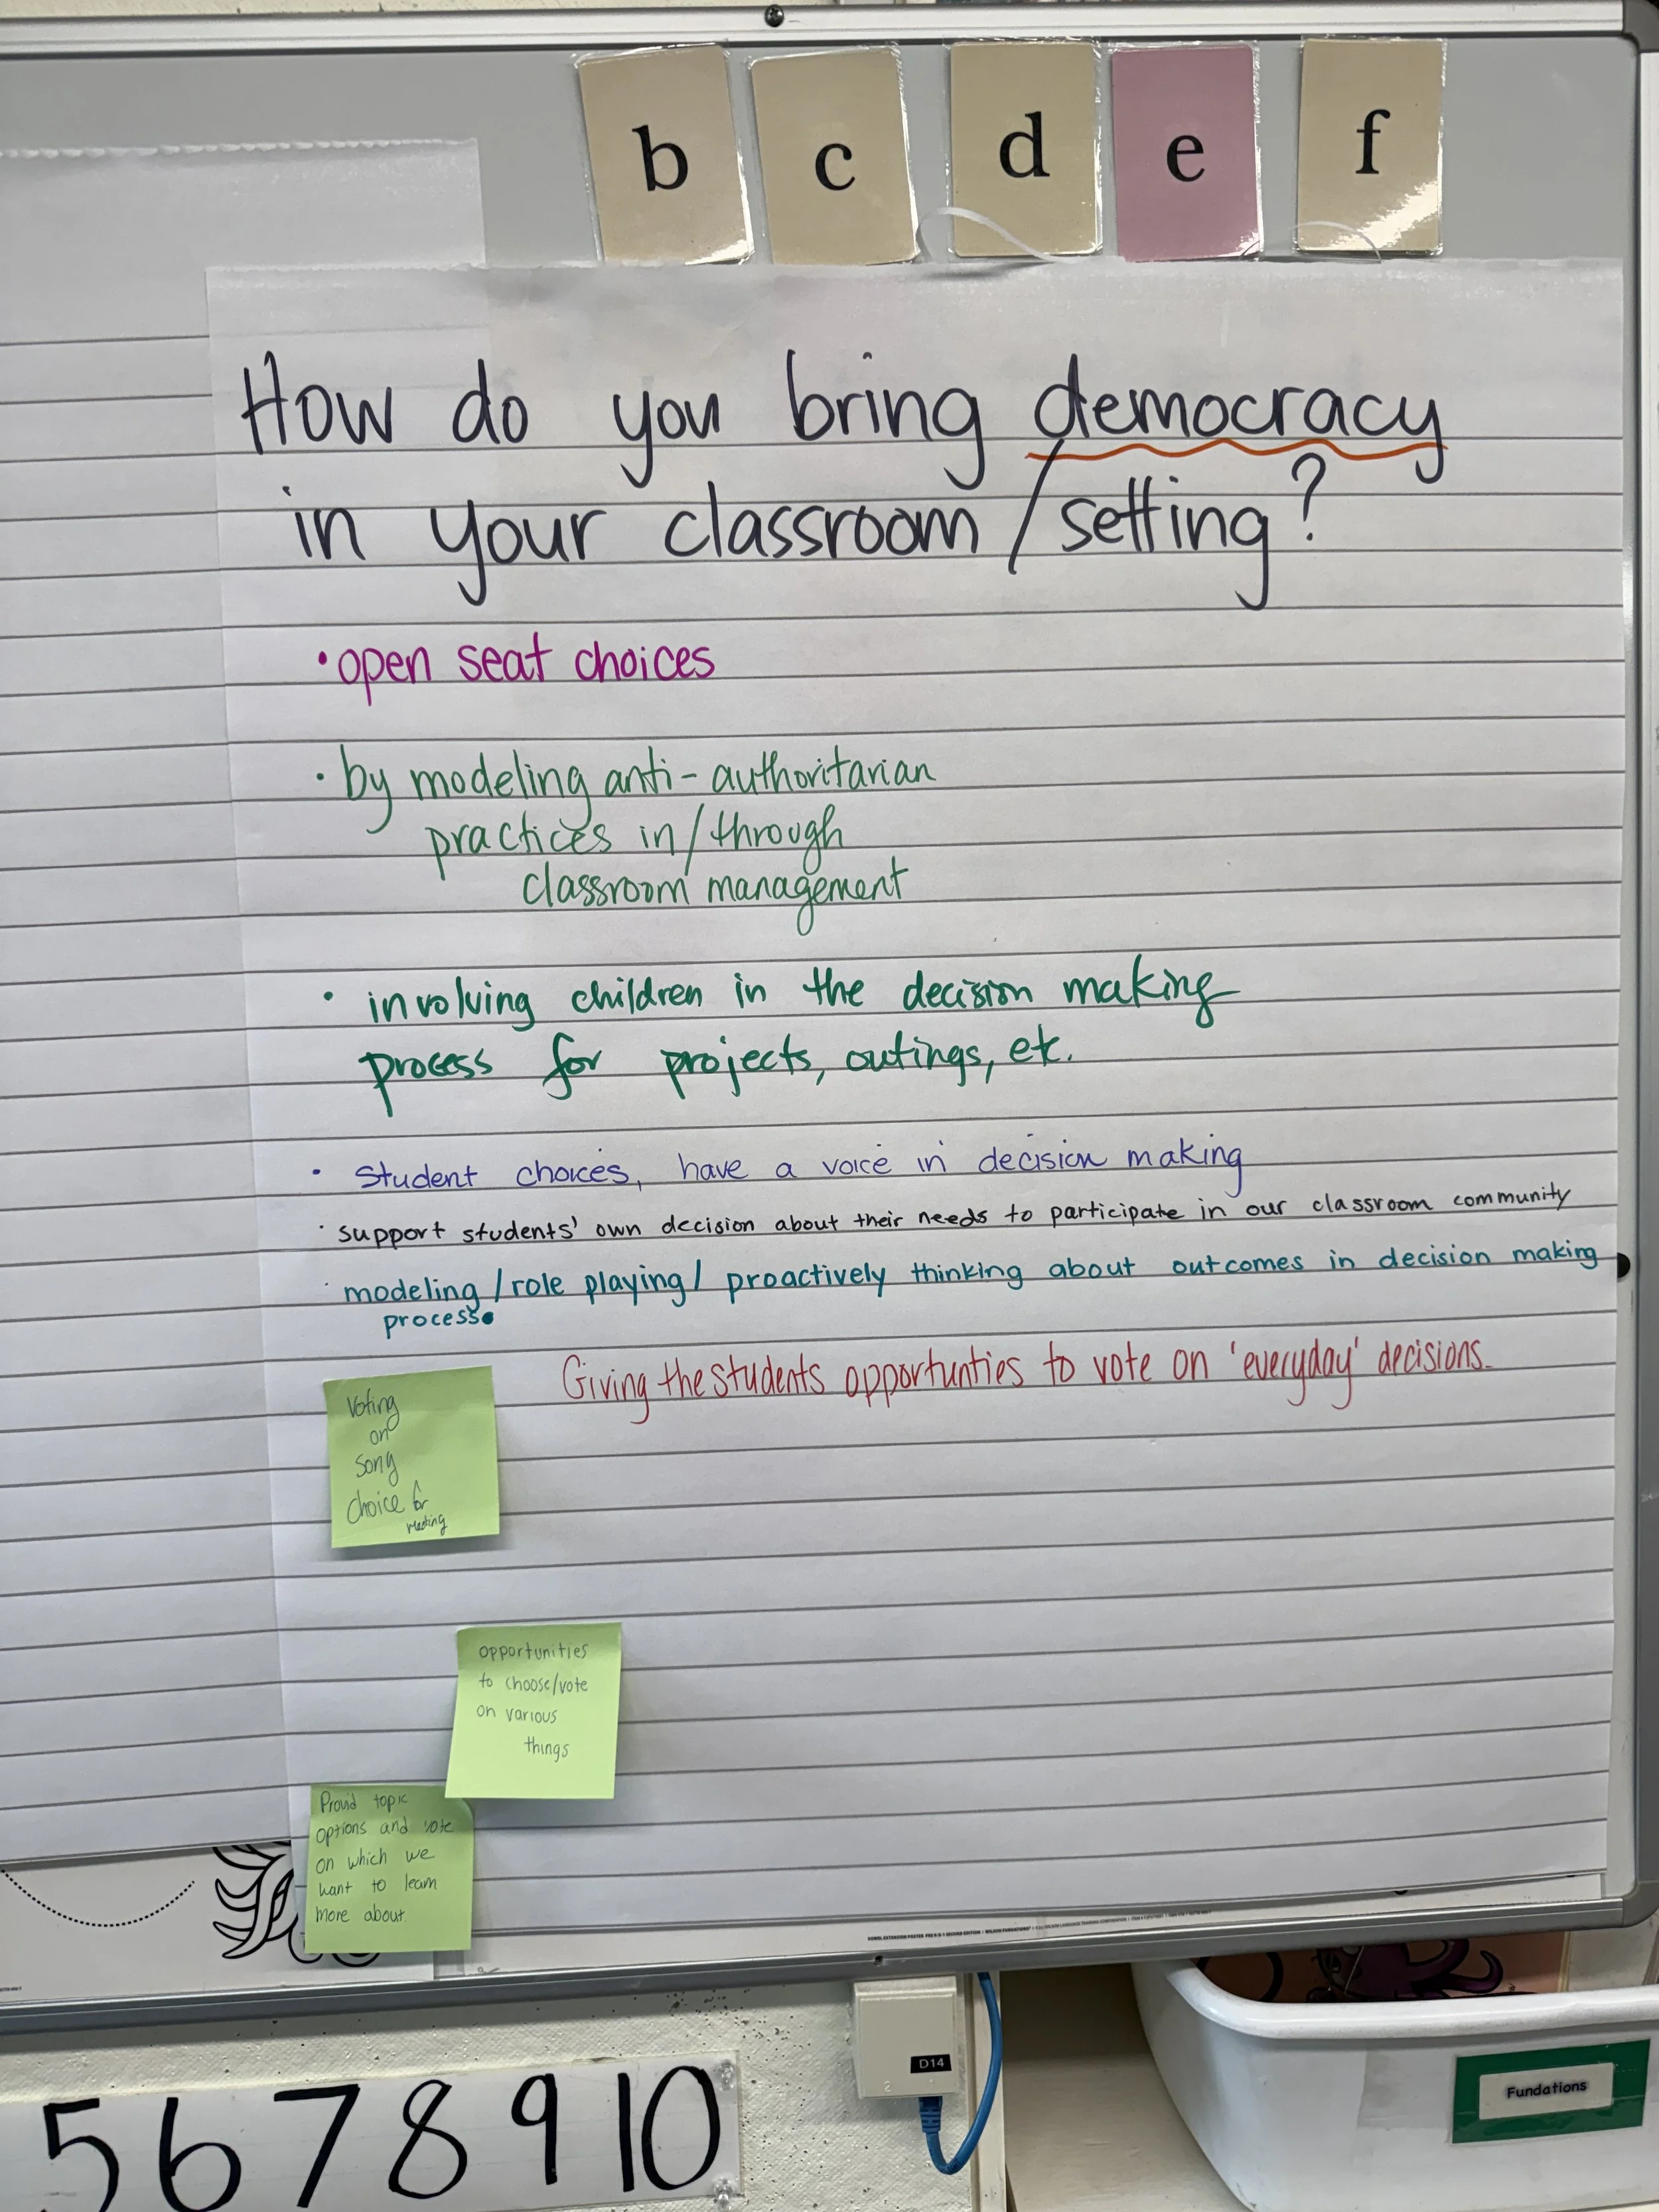 b c d e f
How do you bring democracy
in your classroom / setting?
• open seat choices
• by modeling anti-authoritarian
practices in/through
classroom management
• involving children in the decision making
process for projects, outings, etc.
• Student choices, have a voice in decision making
• support students' own decision about their needs to participate in our classroom community
• modeling / role playing / proactively thinking about outcomes in decision making
process.
Giving the students opportunties to vote on 'everyday' decisions.
Voting
on
song
choice for
meeting
opportunities
to choose/vote
on various
things
Provid topic
options and vote
on which we
want to learn
more about.
D14
2
Fundations
5 6 7 8 9 10